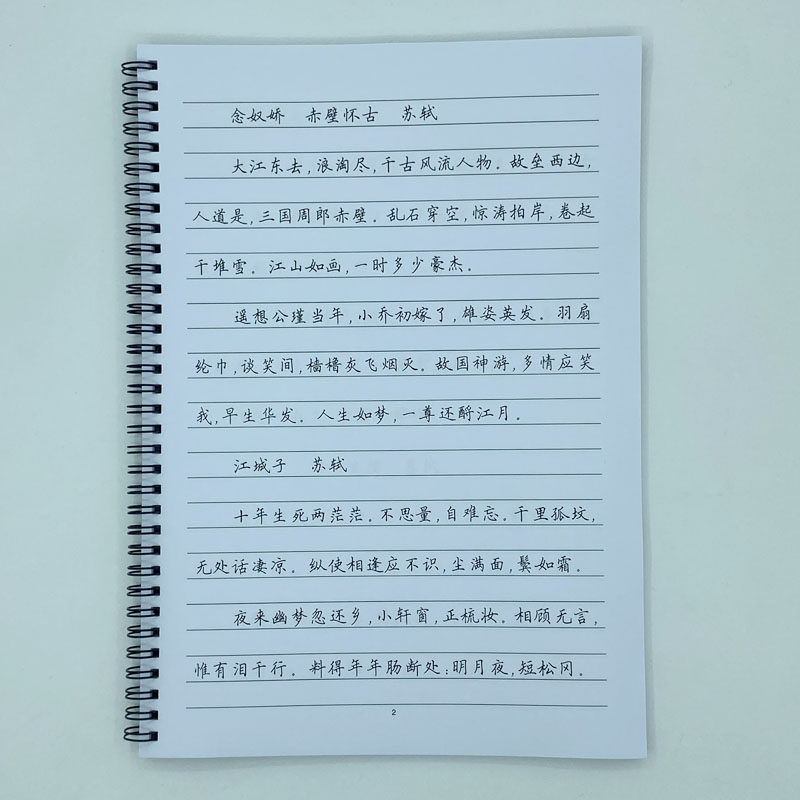 念奴娇 赤壁怀古 苏轼
大江东去,浪淘尽,千古风流人物。故垒西边,
人道是,三国周郎赤壁。乱石穿空,惊涛拍岸,卷起
千堆雪。江山如画,一时多少豪杰。
遥想公瑾当年,小乔初嫁了,雄姿英发。羽扇
纶巾,谈笑间,樯橹灰飞烟灭。故国神游,多情应笑
我,早生华发。人生如梦,一尊还酹江月。
江城子 苏轼
十年生死两茫茫。不思量,自难忘。千里孤坟,
无处话凄凉。纵使相逢应不识,尘满面,鬓如霜。
夜来幽梦忽还乡,小轩窗,正梳妆。相顾无言,
惟有泪千行。料得年年肠断处:明月夜,短松冈。
2